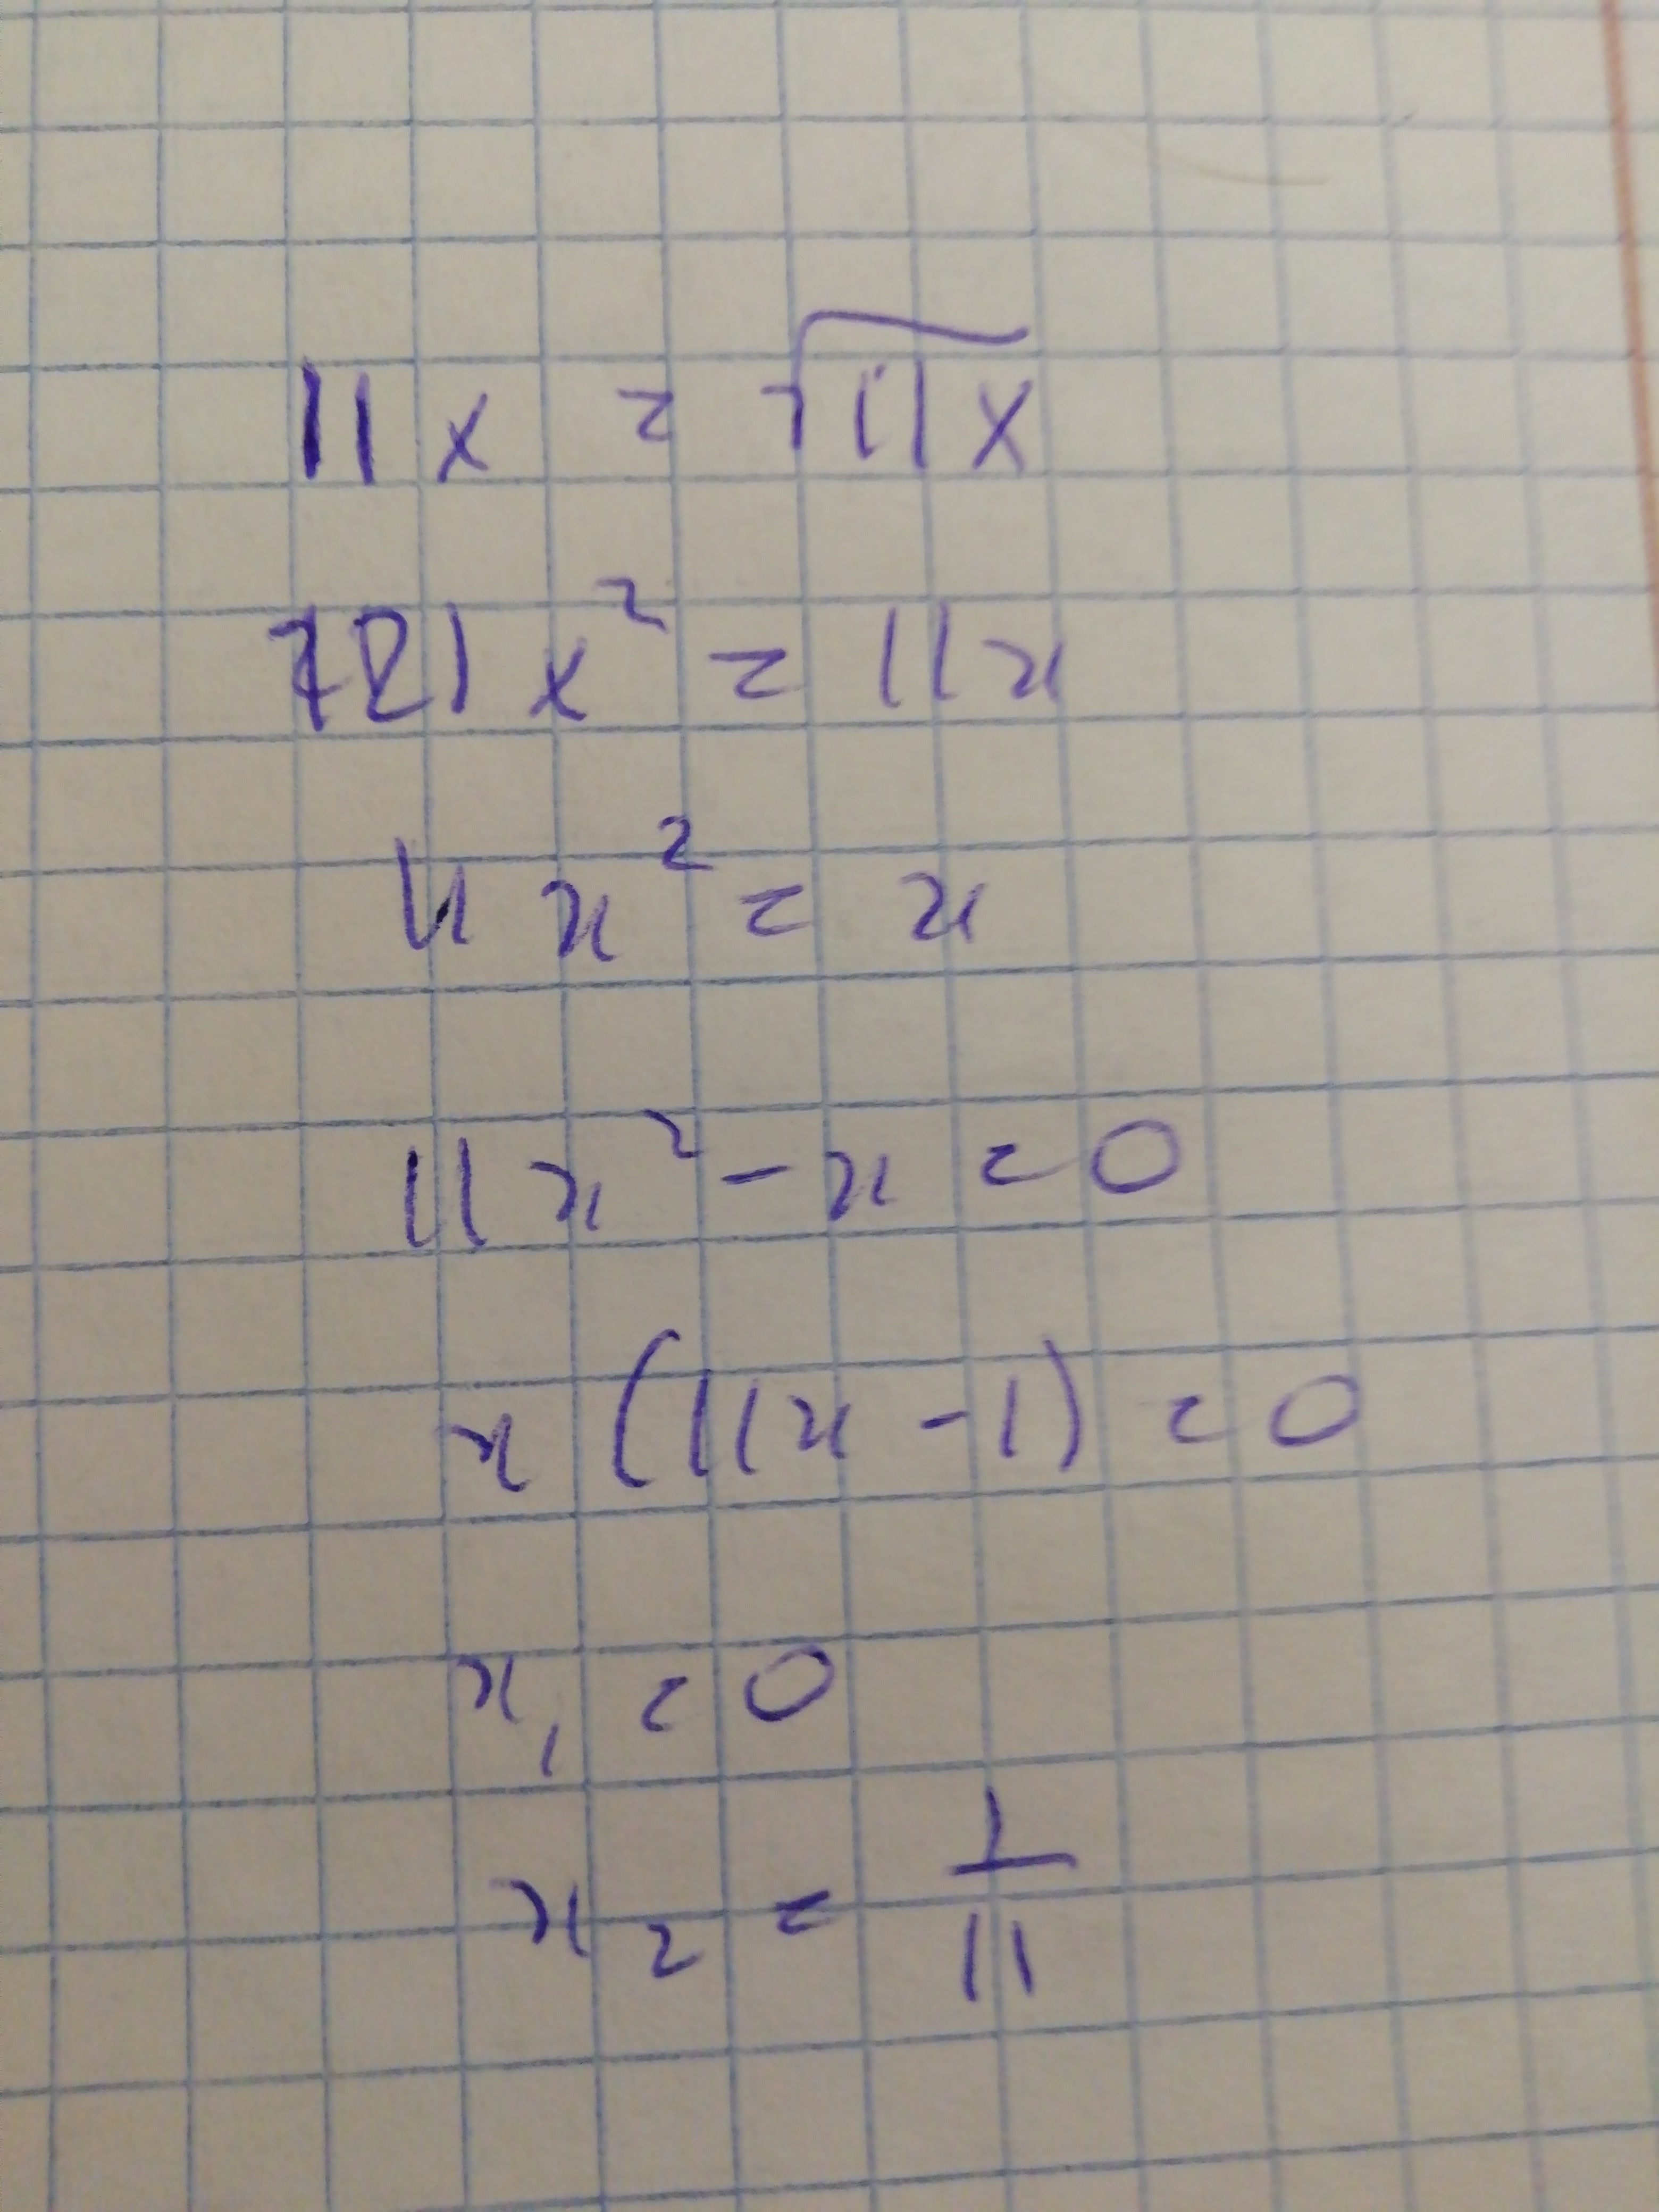 11x = √11x
121x² = 11x
11x² = x
11x² - x = 0
x(11x - 1) = 0
x₁ = 0
x₂ = 1/11